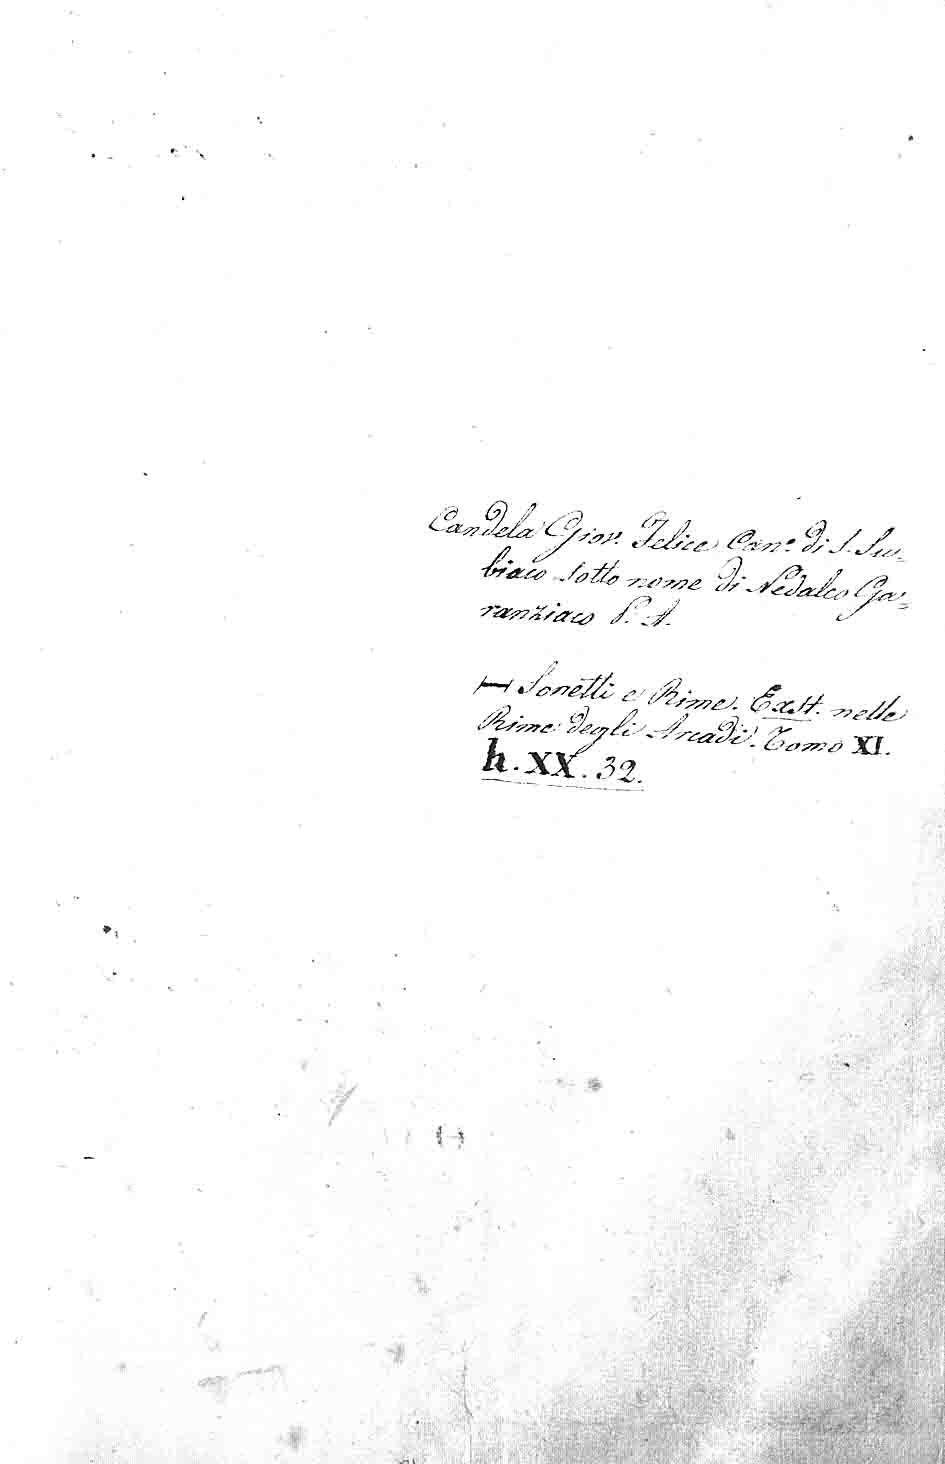 Candela Giov. Felice Can.º di S. Su=
biaco sotto nome di Nedalco Ga=
ranziaco P. A.
— Sonetti e Rime. Exst. nelle
Rime degli Arcadi. Tomo XI.
h. XX. 32.